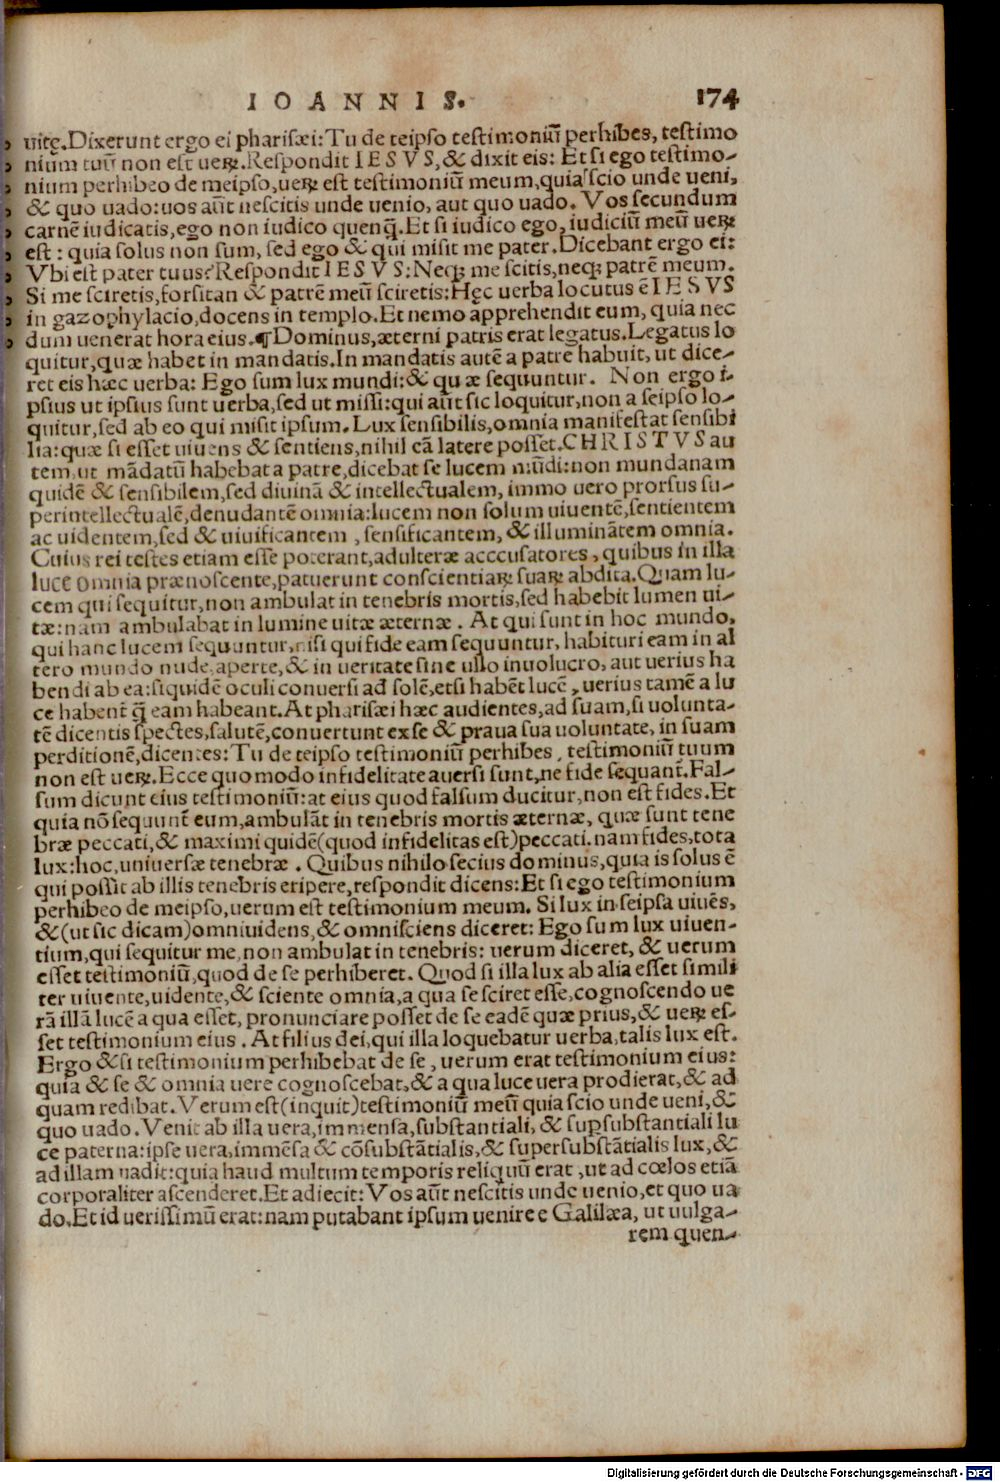 IOANNIS. 174
uitę.Dixerunt ergo ei pharisæi: Tu de teipso testimoniū perhibes, testimo
nium tuū non est ueꝝ.Respondit IESVS,& dixit eis: Et si ego testimo-
nium perhibeo de meipso,ueꝝ est testimoniū meum,quia scio unde ueni,
& quo uado:uos aūt nescitis unde uenio, aut quo uado. Vos secundum
carnē iudicatis,ego non iudico quenq̄.Et si iudico ego, iudiciū meū ueꝝ
est : quia solus non sum, sed ego & qui misit me pater.Dicebant ergo ei:
Vbi est pater tuus?Respondit IESVS:Neqꝫ me scitis,neqꝫ patrē meum.
Si me sciretis,forsitan & patrē meū sciretis:Hęc uerba locutus ē IESVS
in gazophylacio,docens in templo.Et nemo apprehendit eum, quia nec
dum uenerat hora eius.¶Dominus,æterni patris erat legatus.Legatus lo
quitur,quæ habet in mandatis.In mandatis autē a patre habuit, ut dice-
ret eis hæc uerba: Ego sum lux mundi:& quæ sequuntur. Non ergo i-
psius ut ipsius sunt uerba,sed ut missi:qui aūt sic loquitur,non a seipso lo-
quitur,sed ab eo qui misit ipsum.Lux sensibilis,omnia manifestat sensibi
lia:quæ si esset uiuens & sentiens,nihil eā latere posset.CHRISTVS au
tem,ut mādatū habebat a patre,dicebat se lucem mūdi:non mundanam
quidē & sensibilem,sed diuinā & intellectualem, immo uero prorsus su-
perintellectualē,denudantē omnia:lucem non solum uiuentē,sentientem
ac uidentem,sed & uiuificantem , sensificantem, & illuminātem omnia.
Cuius rei testes etiam esse poterant,adulteræ acccusatores, quibus in illa
luce omnia prænoscente,patuerunt conscientiaꝝ suaꝝ abdita.Quam lu-
cem qui sequitur,non ambulat in tenebris mortis,sed habebit lumen ui-
tæ:nam ambulabat in lumine uitæ æternæ . At qui sunt in hoc mundo,
qui hanc lucem sequuntur,nisi qui fide eam sequuntur, habituri eam in al
tero mundo nude,aperte,& in ueritate sine ullo inuolucro, aut uerius ha
bendi ab ea:siquidē oculi conuersi ad solē,etsi habēt lucē , uerius tamē a lu
ce habent̄ q̄ eam habeant.At pharisæi hæc audientes,ad suam,si uolunta-
tē dicentis spectes,salutē,conuertunt ex se & praua sua uoluntate, in suam
perditionē,dicentes: Tu de teipso testimoniū perhibes , testimoniū tuum
non est ueꝝ.Ecce quomodo infidelitate auersi sunt,ne fide sequant̄.Fal-
sum dicunt eius testimoniū:at eius quod falsum ducitur,non est fides.Et
quia nō sequunt̄ eum,ambulāt in tenebris mortis æternæ, quæ sunt tene
bræ peccati,& maximi quidē(quod infidelitas est)peccati.nam fides,tota
lux:hoc,uniuersæ tenebræ . Quibus nihilo secius dominus,quia is solus ē
qui possit ab illis tenebris eripere,respondit dicens:Et si ego testimonium
perhibeo de meipso,uerum est testimonium meum. Si lux in seipsa uiuēs,
&(ut sic dicam)omniuidens,& omnisciens diceret: Ego sum lux uiuen-
tium,qui sequitur me,non ambulat in tenebris: uerum diceret, & uerum
esset testimoniū,quod de se perhiberet. Quod si illa lux ab alia esset simili
ter uiuente,uidente,& sciente omnia,a qua se sciret esse,cognoscendo ue
rā illā lucē a qua esset, pronunciare posset de se eadē quæ prius,& ueꝝ es-
set testimonium eius . At filius dei,qui illa loquebatur uerba,talis lux est.
Ergo & si testimonium perhibebat de se , uerum erat testimonium eius:
quia & se & omnia uere cognoscebat,& a qua luce uera prodierat,& ad
quam redibat.Verum est(inquit)testimoniū meū quia scio unde ueni,&
quo uado.Venit ab illa uera,immensa,substantiali, & suꝑsubstantiali lu
ce paterna:ipse uera,immēsa & cōsubstātialis,& supersubstātialis lux,&
ad illam uadit:quia haud multum temporis reliquū erat , ut ad cœlos etiā
corporaliter ascenderet.Et adiecit: Vos aūt nescitis unde uenio,et quo ua
do.Et id uerissimū erat:nam putabant ipsum uenire e Galilæa, ut uulga-
rem quen-
Digitalisierung gefördert durch die Deutsche Forschungsgemeinschaft - DFG